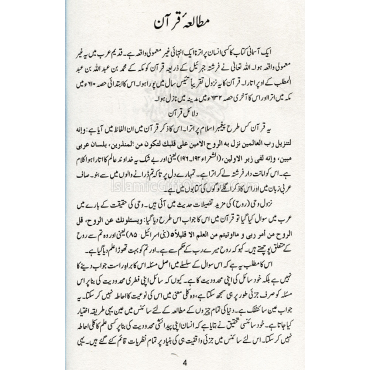 مطالعۂ قرآن
ایک آسمانی کتاب کا کسی انسان پر اترنا ایک انتہائی غیر معمولی واقعہ ہے۔ قدیم عرب میں یہ غیر
معمولی واقعہ ہوا۔ اللہ تعالیٰ نے فرشتہ جبرئیل کے ذریعہ قرآن کو مکہ کے محمد بن عبد اللہ بن عبد
المطلب کے اوپر اتارا۔ قرآن کا یہ نزول تقریباً تئیس سال میں پورا ہوا۔ اس کا ابتدائی حصہ ۶۱۰ء میں
مکہ میں اترا اور اس کا آخری حصہ ۶۳۲ء میں مدینہ میں نازل ہوا۔
دلائل قرآن
یہ قرآن کس طرح پیغمبر اسلام پر اترا، اس کا ذکر قرآن میں ان الفاظ میں آیا ہے: وإنه
لتنزيل رب العالمين نزل به الروح الامين على قلبك لتكون من المنذرين، بلسان عربى
مبين، وإنه لفى زبر الاولين، (الشعراء ۱۹۲-۱۹۶) یعنی اور بے شک یہ خداوند عالم کا اتارا ہوا کلام
ہے۔ اس کو امانت دار فرشتہ لے کر اترا ہے، تمہارے دل پر تاکہ تم ڈرانے والوں میں سے ہو۔ صاف
عربی زبان میں اور اس کا ذکر اگلے لوگوں کی کتابوں میں ہے۔
نزول وحی (روح) کی مزید تفصیلات حدیث میں آئی ہیں۔ وحی کی حقیقت کے بارے میں
عرب میں سوال کیا گیا تو قرآن میں اس کا جواب اس طرح دیا گیا: ويسئلونك عن الروح، قل
الروح من امر ربى و ماأوتيتم من العلم الا قليلاً، (بنی اسرائیل ۸۵) یعنی اور وہ تم سے روح
کے متعلق پوچھتے ہیں۔ کہو کہ روح میرے رب کے حکم سے ہے۔ اور تم کو بہت تھوڑا علم دیا گیا ہے۔
اس کا مطلب یہ ہے کہ اس سوال کے سلسلے میں اصل مسئلہ اس کا براہ راست جواب دینے کا
نہیں ہے بلکہ خود سائل کی اپنی محدودیت کا ہے۔ کیوں کہ سائل اپنی فطری محدودیت کی بنا پر اس
معاملہ کو صرف جزئی طور پر ہی سمجھ سکتا ہے، وہ کلی معنی میں اس کی نوعیت کا احاطہ نہیں کر سکتا۔ یہ
جواب عین سائنٹفک ہے۔ دنیا کی تمام چیزوں کے مطالعہ کے لئے سائنس میں عین یہی طریقہ اختیار
کیا جاتا ہے۔ خود سائنسی تحقیق نے بتایا ہے کہ انسان اپنی پیدائشی محدودیت کی بنا پر کسی علم کا کلی احاطہ
نہیں کر سکتا۔ اس لئے سائنس میں جزئی واقفیت ہی کی بنیاد پر تمام نظریات قائم کئے گئے ہیں۔ یہی
4